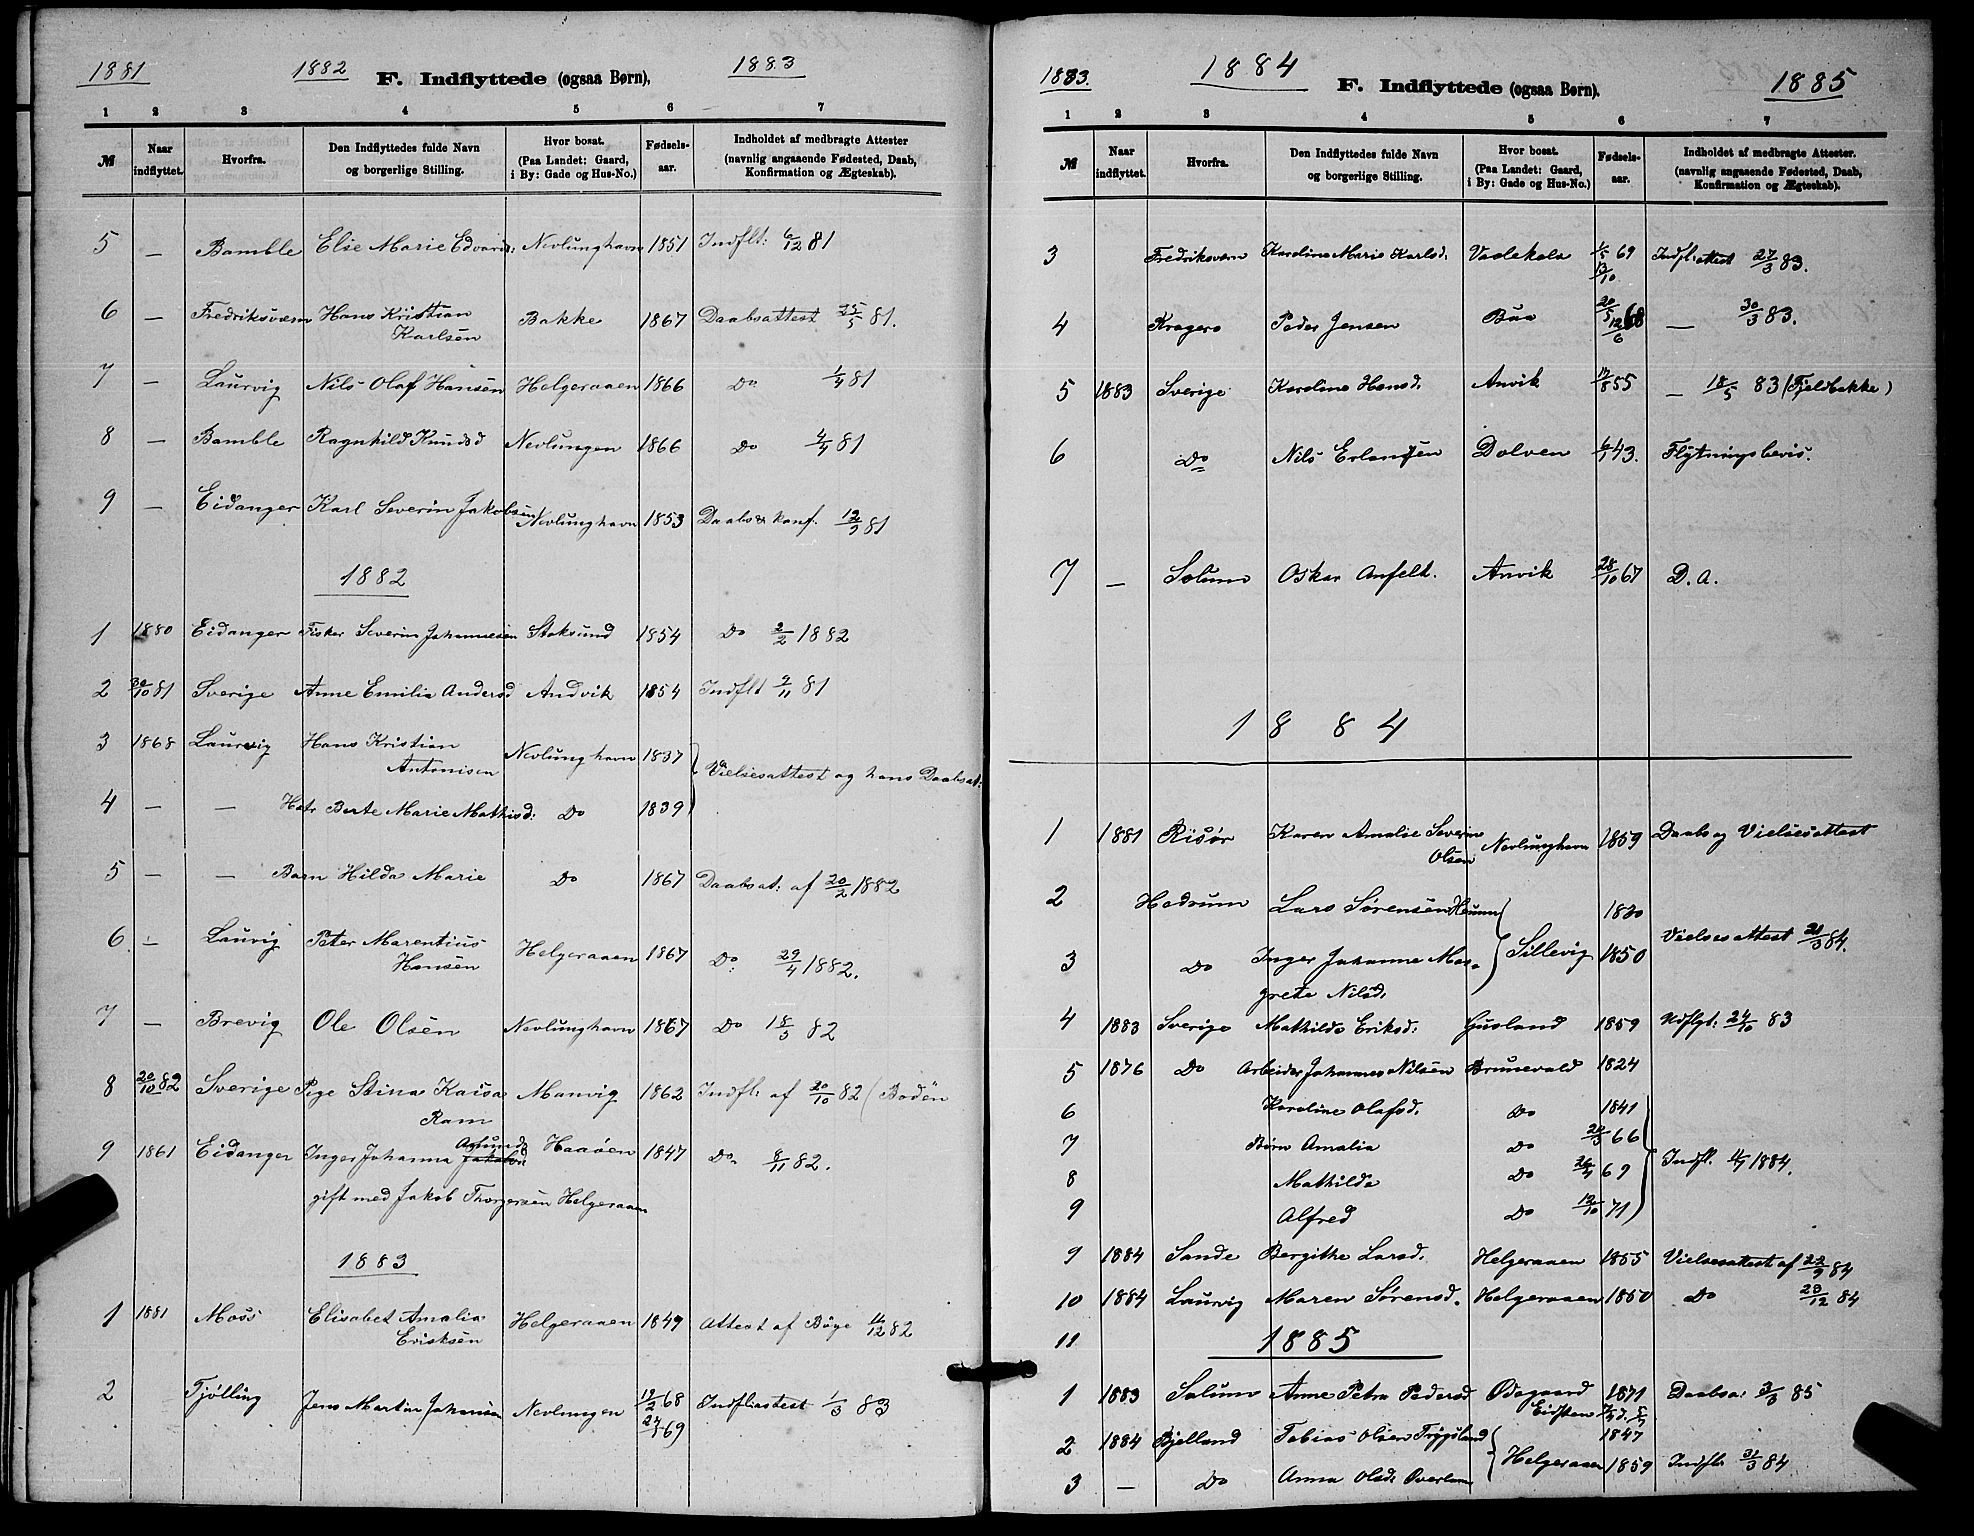 1881 1882 F. Indflyttede (ogsaa Børn), 1883
1 2 3 4 5 6 7
№ Naar indflyttet. Hvorfra. Den Indflyttedes fulde Navn og borgerlige Stilling. Hvor bosat. (Paa Landet: Gaard, i By: Gade og Hus-No.) Fødsels-aar. Indholdet af medbragte Attester (navnlig angaaende Fødested, Daab, Konfirmation og Ægteskab).
5 — Bamble Elise Marie Edvards: Nevlunghavn 1851 Indflt: 6/12 81
6 — Fredriksværn Hans Kristian Bakke 1867 Daabsattest 25/5 81.
Karlsen
7 — Laurvig Nils Olaf Hansen Helgeraaen 1866 Do 1/4 81
8 — Bamble Ragnhild Knudsd Nevlungen 1866 Do 4/4 81
9 — Eidanger Karl Severin Jakobsen Nevlunghavn 1853 Daabs & konf. 12/9 81
1882
1 1880 Eidanger Fisker Severin Johannesen Stoksund 1854 Do 2/2 1882
2 30/10 81 Sverige Anne Emilia Andersd Andvik 1854 Indflt 9/11 81
3 1868 Laurvig Hans Kristian Nevlunghavn 1837
Antonisen Vielsesattest og hans Daabsat:
4 — — Hstr Berte Marie Mathisd: Do 1839
5 — — Barn Hilda Marie Do 1867 Daabsat: af 20/2 1882
6. — Lauvig Peter Marentius Helgeraaen 1867 Do: 29/4 1882.
Hansen
7 — Brevig Ole Olsen Nevlunghavn 1867 Do 18/3 82
8 20/10 82 Sverige Pige Stina Kaisa Manvig 1862 Indfl: af 20/10 82 (Bodén
Ram
9 1861 Eidanger Inger Johanna Aslunds Haaøen 1847 Do. 8/11 82.
gift med Jakob Thorgersen Helgeraaen
1883
1 1881 Moss Elisabet Amalia Helgeraaen 1849 Attest af Böye 16/12 82
Eriksen
2 Tjølling Jens Martin Johansen Nevlungen 12/2 68 Indfliattest 1/3 83
69
1883. 1884 F. Indflyttede (ogsaa Børn). 1885
1 2 3 4 5 6 7
№ Naar indflyttet. Hvorfra. Den Indflyttedes fulde Navn og borgerlige Stilling. Hvor bosat. (Paa Landet: Gaard, i By: Gade og Hus-No.) Fødsels-aar. Indholdet af medbragte Attester. (navnlig angaaende Fødested, Daab, Konfirmation og Ægteskab).
3 Fredriksværn Karoline Marie Karlsd. 69 Indfl: attest 27/3 83.
4 Kragerø Peder Jensen 20/5 68 — 30/3 83.
12/6
5 1883 Sverige Karoline Hansd. Anvik 55 — 18/5 83 (Fjeldbakke)
6 Do Nils Erlandsen Dolven 6/1 43. Flytningsbevis.
7 — Solum Oskar Anfelt. Anvik 28/10 67 D. A.
1884
1 1881 Risør Karen Amalie Severin Nevlunghavn 1859 Daabs og Vielsesattest
Olsen
2 Hedrum Lars Sørensen Heum 1830
Sillevig Vielsesattest 21/3 84.
3 Do Inger Johanne Mar- 1850
grete Nilsd.
4 1883 Sverige Mathilde Eriksd. Gusland 1859 Udflyt: 24/10 83
5 1876 Do Arbeider Johannes Nilsen Brunevald 1824
6 Karoline Olafsd. Do 1841
7 Børn Amalia Do 66
8 Mathilde Do 69 Indfl. 1884.
9 Alfred Do 12/10 71
9 1884 Sande Bergithe Larsd. Helgeraaen 1855 Vielsesattest af 22/9 84
10 1884 Laurvig Maren Sørensd. Helgeraaen 1850 Do 28/12 84
11 1885
1 1883 Solum Anne Petra Pedersd Ødegaard 1871 Daabsa: 3/3 85
Eidsten
2 1884 Bjelland Tobias Olsen Trygsland 1847
Helgeraaen Indfl: 31/3 84
3 — Do Anna Olsd: 1859